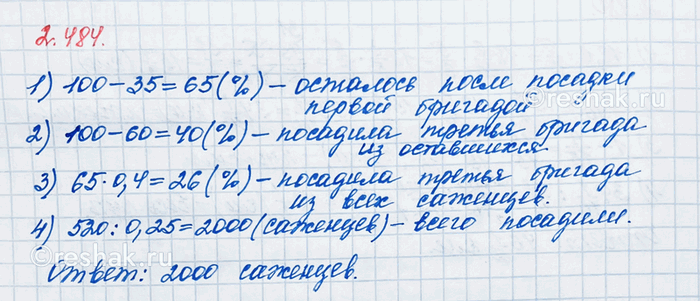 2.484.
1) 100-35=65(%) - осталось после посадки
первой бригадой
2) 100-60=40(%) - посадила третья бригада
из оставшихся.
3) 65·0,4=26(%) - посадила третья бригада
из всех саженцев.
4) 520:0,25=2000(саженцев) - всего посадили.
Ответ: 2000 саженцев.
©reshak.ru